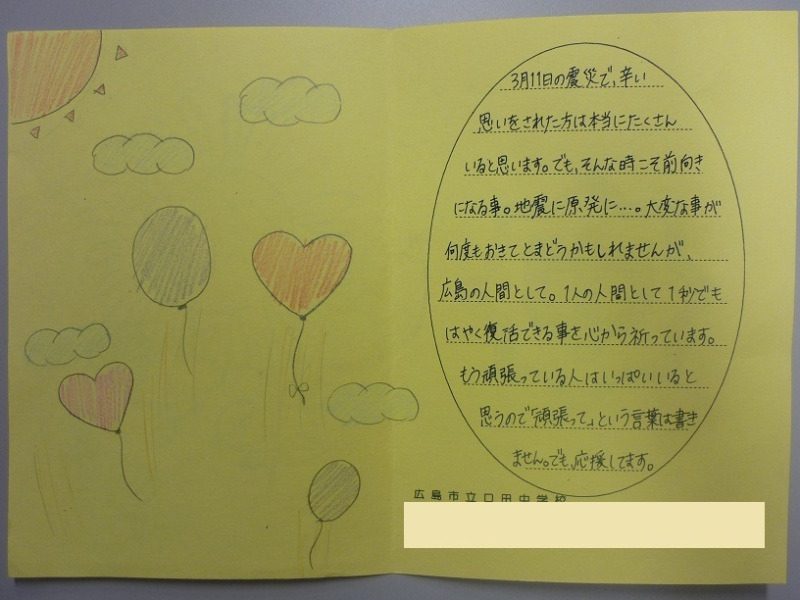 3月11日の震災で、辛い
思いをされた方は本当にたくさん
いると思います。でも、そんな時こそ前向き
になる事。地震に原発に…。大変な事が
何度もおきてとまどうかもしれませんが、
広島の人間として。1人の人間として1秒でも
はやく復活できる事を心から祈っています。
もう頑張っている人はいっぱいいると
思うので「頑張って」という言葉は書き
ません。でも、応援してます。
広島市立口田中学校